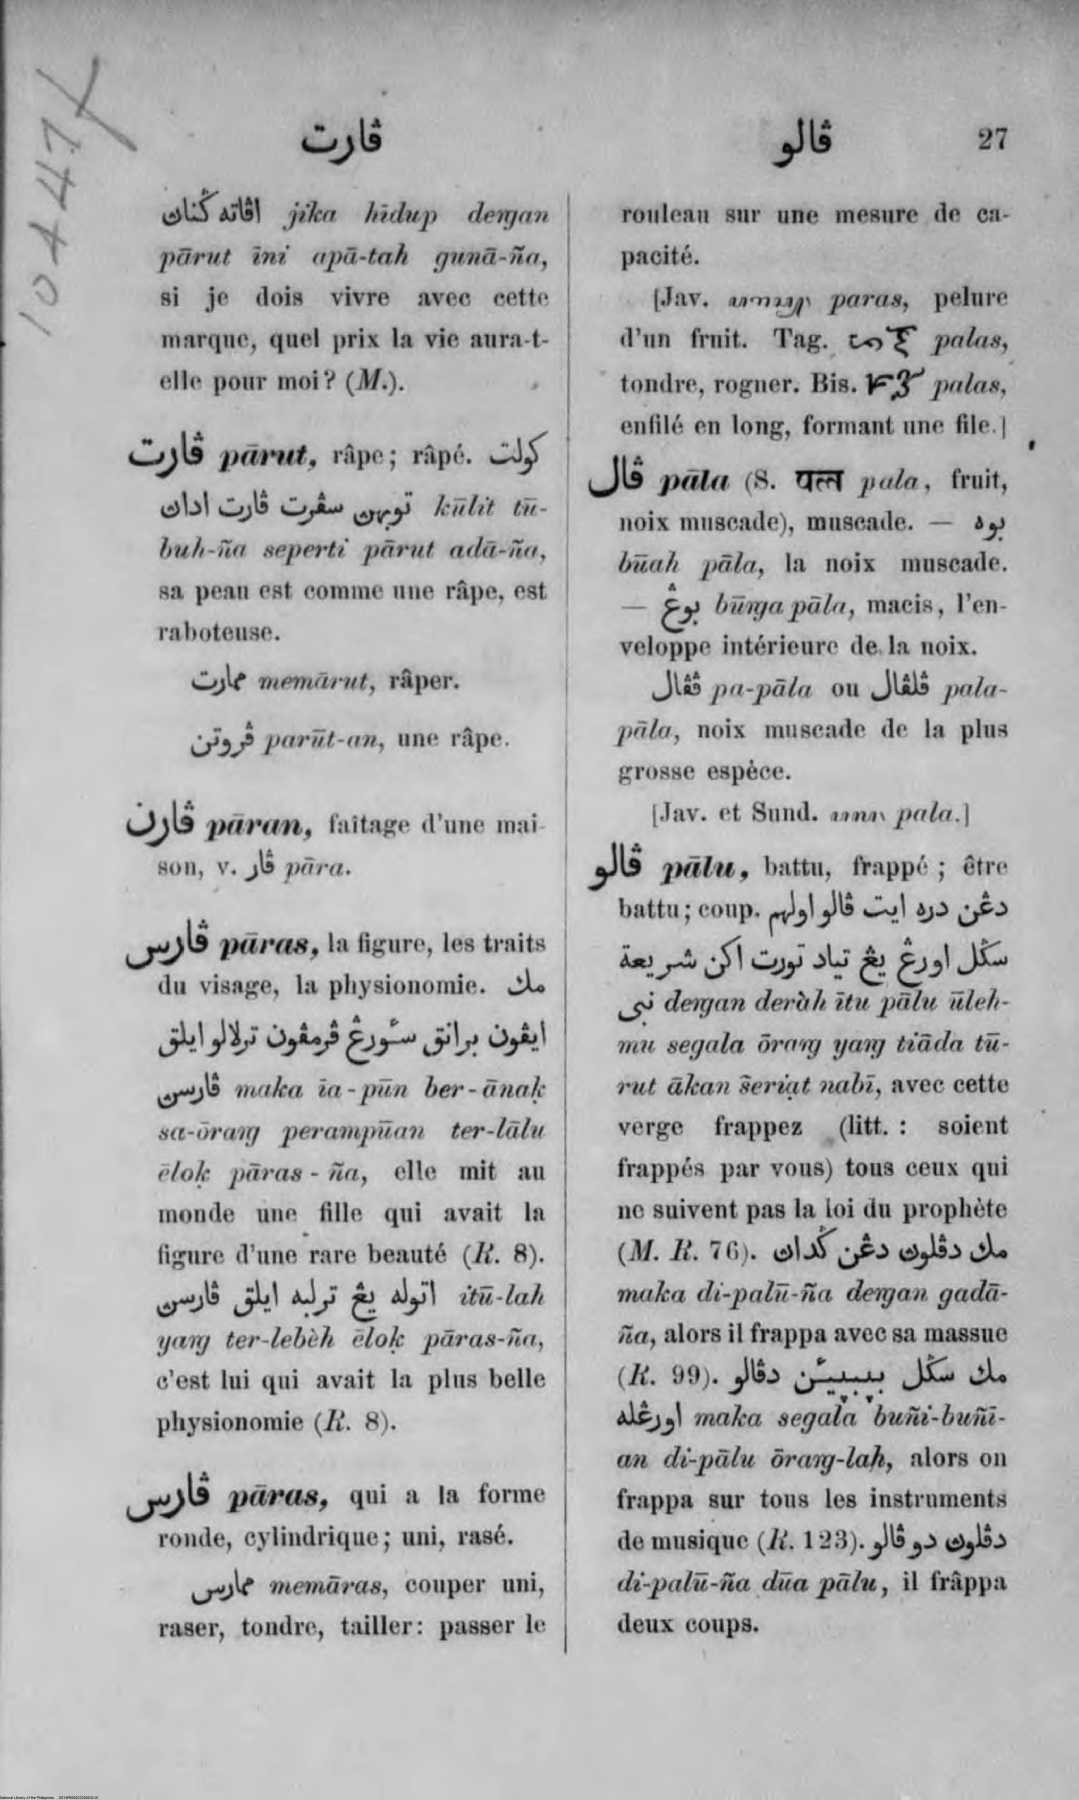 ڤارت
ڤالو 27
اڤاته ݢنان jīka hīdup deṅgan
pārut īni apā-tah gunā-ña,
si je dois vivre avec cette
marque, quel prix la vie aura-t-
elle pour moi? (M.).
ڤارت pārut, râpe; râpé. كولت
توبهن سڤرت ڤارت ادان kūlit tū-
buh-ña seperti pārut adā-ña,
sa peau est comme une râpe, est
raboteuse.
ممارت memārut, râper.
ڤروتن parūt-an, une râpe.
ڤارن pāran, faîtage d'une mai-
son, v. ڤار pāra.
ڤارس pāras, la figure, les traits
du visage, la physionomie. مك
ايڤون برانق سئورڠ ڤرمڤون ترلالو ايلق
ڤارسن maka īa-pūn ber-ānaḳ
sa-ōraṅg perampūan ter-lālu
ēloḳ pāras-ña, elle mit au
monde une fille qui avait la
figure d'une rare beauté (R. 8).
اتوله يڠ ترلبه ايلق ڤارسن itū-lah
yaṅg ter-lebèh ēloḳ pāras-ña,
c'est lui qui avait la plus belle
physionomie (R. 8).
ڤارس pāras, qui a la forme
ronde, cylindrique; uni, rasé.
ممارس memāras, couper uni,
raser, tondre, tailler: passer le
rouleau sur une mesure de ca-
pacité.
[Jav. paras, pelure
d'un fruit. Tag. palas,
tondre, rogner. Bis. palas,
enfilé en long, formant une file.]
ڤال pāla (S. पल्ल pala, fruit,
noix muscade), muscade. — بوه
būah pāla, la noix muscade.
— بوڠ būṅga pāla, macis, l'en-
veloppe intérieure de la noix.
ڤڤال pa-pāla ou ڤلڤال pala-
pāla, noix muscade de la plus
grosse espèce.
[Jav. et Sund. pala.]
ڤالو pālu, battu, frappé; être
battu; coup. دڠن دره ايت ڤالو اولهم
سݢل اورڠ يڠ تياد تورت اكن شريعة
نبى deṅgan deràh ītu pālu ūleh-
mu segala ōraṅg yaṅg tiāda tū-
rut ākan šerịat nabī, avec cette
verge frappez (litt. : soient
frappés par vous) tous ceux qui
ne suivent pas la loi du prophète
(M. R. 76). مك دڤلون دڠن ݢدان
maka di-palū-ña deṅgan gadā-
ña, alors il frappa avec sa massue
(R. 99). مك سݢل بڽيبڽيئن دڤالو
اورڠله maka segala buñi-buñī-
an di-pālu ōraṅg-lah, alors on
frappa sur tous les instruments
de musique (R. 123). دڤلون دو ڤالو
di-palū-ña dūa pālu, il frâppa
deux coups.